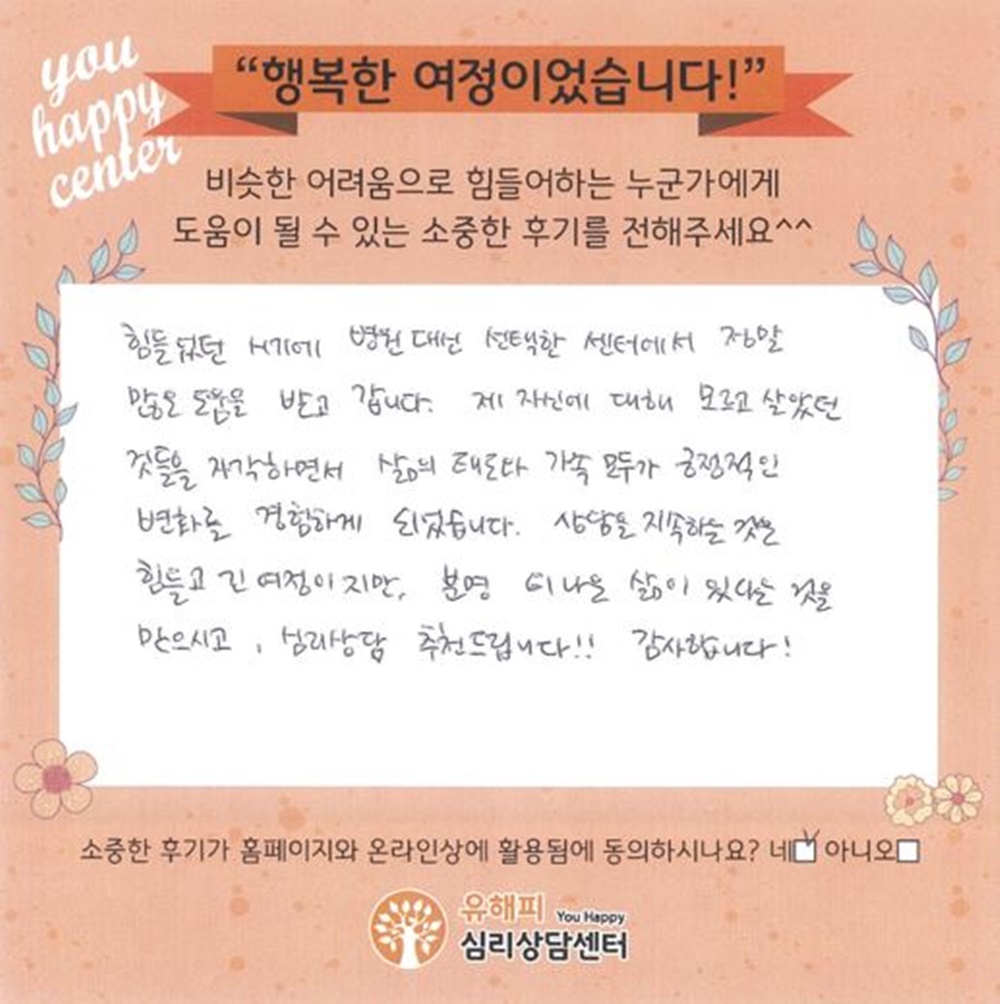 you
happy
center
“행복한 여정이었습니다!”
비슷한 어려움으로 힘들어하는 누군가에게
도움이 될 수 있는 소중한 후기를 전해주세요^^
힘들었던 시기에 병원 대신 선택한 센터에서 정말
많은 도움을 받고 갑니다. 제 자신에 대해 모르고 살았던
것들을 자각하면서 삶의 태도나 가족 모두가 긍정적인
변화를 경험하게 되었습니다. 상담을 지속하는 것은
힘들고 긴 여정이지만, 분명 더 나은 삶이 있다는 것을
믿으시고, 심리상담 추천드립니다!! 감사합니다!
소중한 후기가 홈페이지와 온라인상에 활용됨에 동의하시나요? 네☑ 아니오☐
유해피 You Happy
심리상담센터